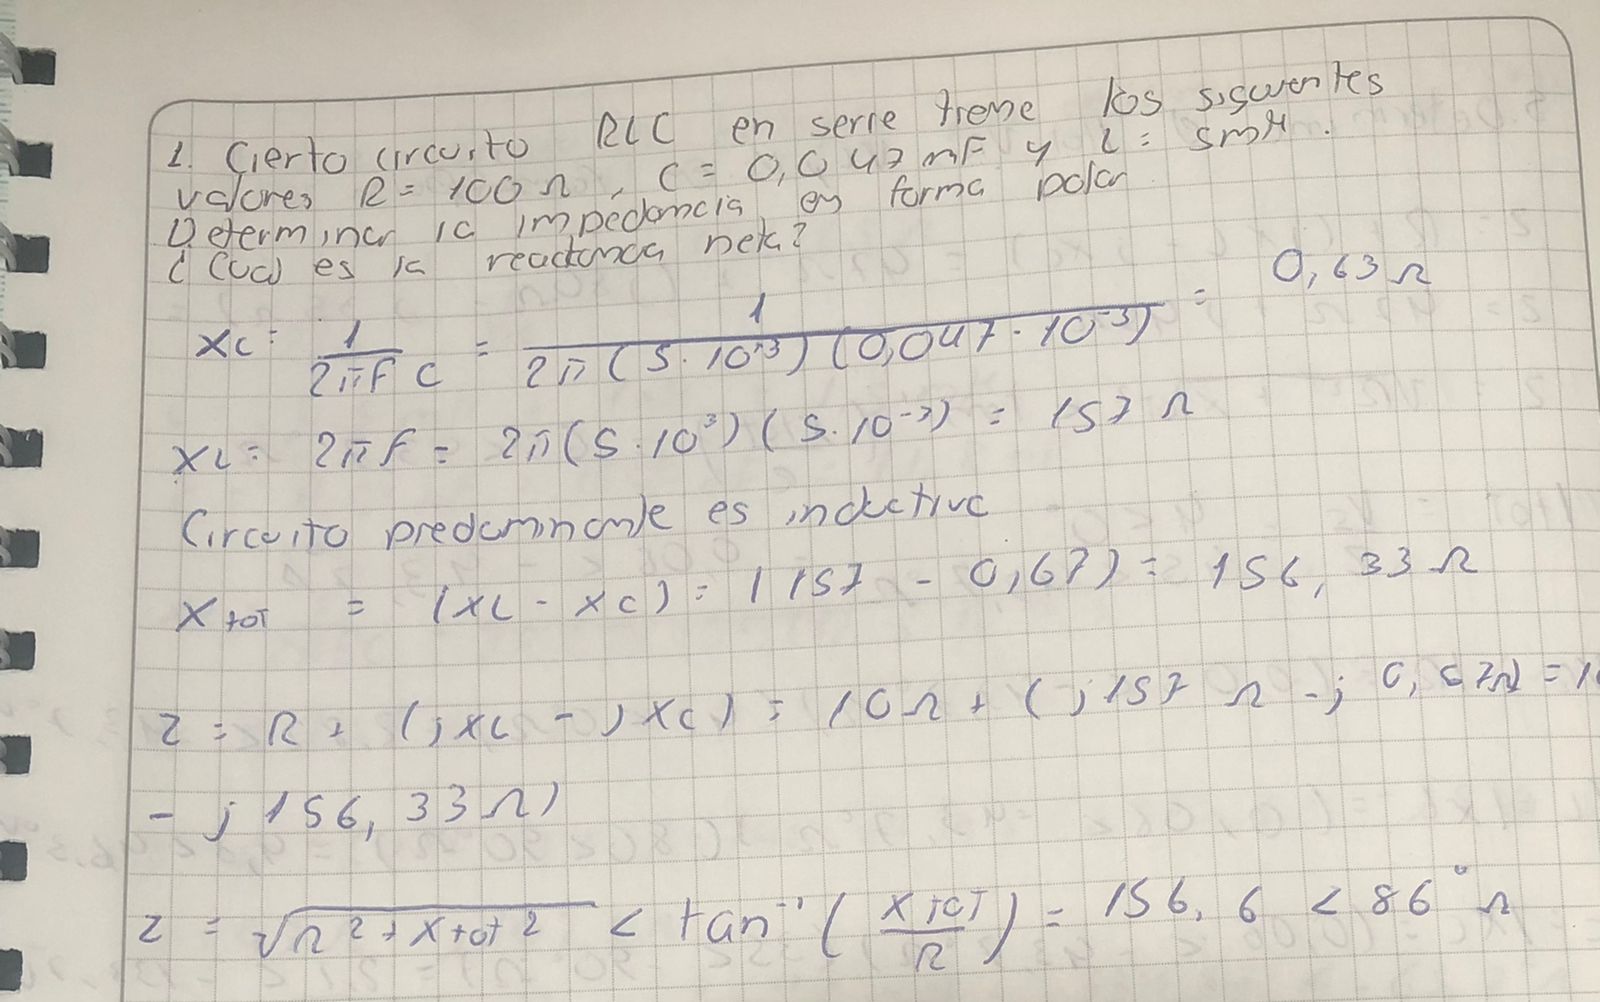 1. Cierto circuito RLC en serie tiene los siguientes
valores R = 100 Ω, C = 0,047 mF y L = 5mH.
Determinar la impedancia en forma polar
¿Cual es la reactancia neta?
XC = 1 / 2πf C = 1 / 2π(5·10^3)(0,047·10^-3) = 0,63 Ω
XL = 2πf = 2π(5·10^3)(5·10^-3) = 157 Ω
Circuito predominante es inductivo
Xtot = (XL - XC) = |157 - 0,67) = 156,33 Ω
Z = R + (jXL - jXC) = 10Ω + (j157 Ω - j 0,67Ω) = 10
- j 156,33 Ω)
Z = √R^2 + Xtot^2 < tan^-1 (Xtot / R) = 156,6 < 86° Ω